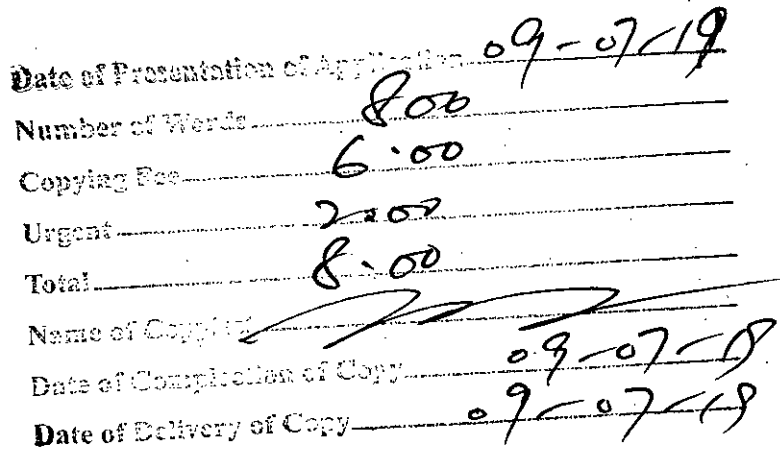 Date of Presentation of Application 09-07-19
Number of Words 800
Copying Fee 6.00
Urgent 2.00
Total 8.00
Name of Copyist
Date of Completion of Copy 09-07-19
Date of Delivery of Copy 09-07-19